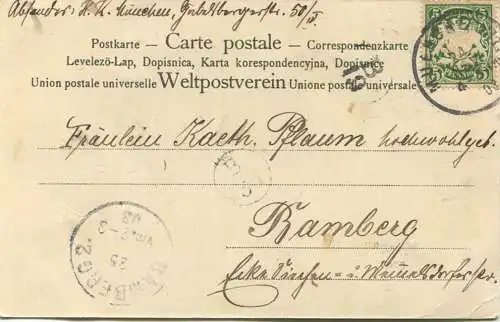 Absender: H. K. München, Gabelsbergerstr. 50/I.
Postkarte — Carte postale — Correspondenzkarte
Levelező-Lap, Dopisnica, Karta korespondencyjna, Dopisnice
Union postale universelle Weltpostverein Unione postale universale
Fräulein Kaeth. Pflaum hochwohlgeb.
Bamberg
Ecke Siechen- u.
BAMBERG 2.
25
03